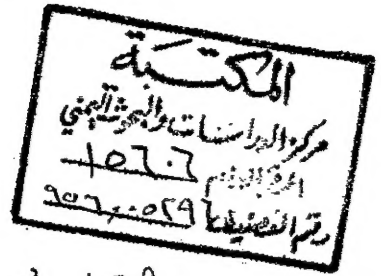 المكتبة
مركز الدراسات والبحوث اليمني
الرقم العام ١٥٦٠٦
رقم التصنيف ٩٥٦,٠٠٥٢٩٦